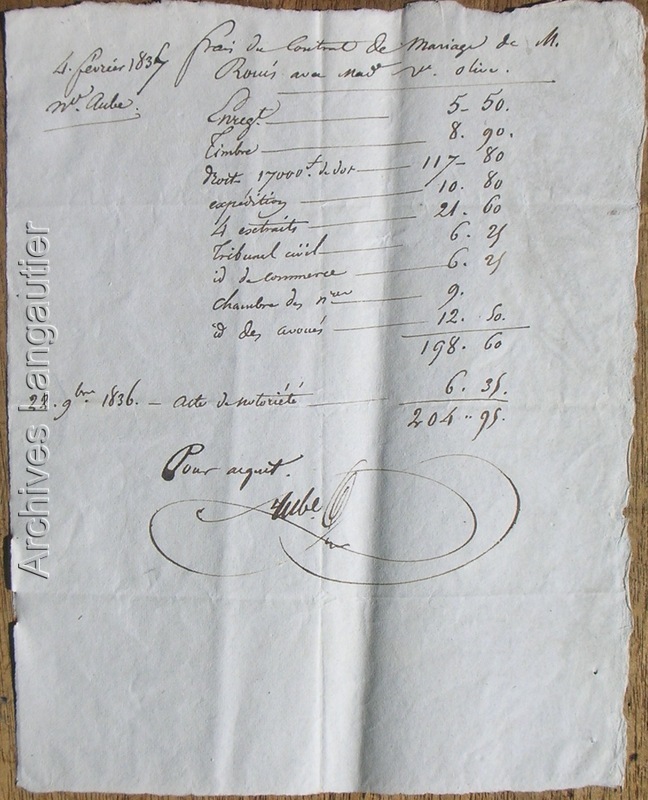 4. février 1837 frais du Contrat de Mariage de M.
Roués avec mad.e v.e olive.
M.e Aube.
Enreg.t 5 - 50.
Timbre 8. 90.
droit 17000 f de dot 117 - 80
expédition 10. 80
4 extraits 21. 60
Tribunal civil 6. 25
id de commerce 6. 25
chambre des n.res 9.
id des avoués 12. 50.
198. 60
22. 9bre 1836. - acte de notoriété 6. 35.
204 - 95.
Pour acquit.
Aube
Archives Langautier